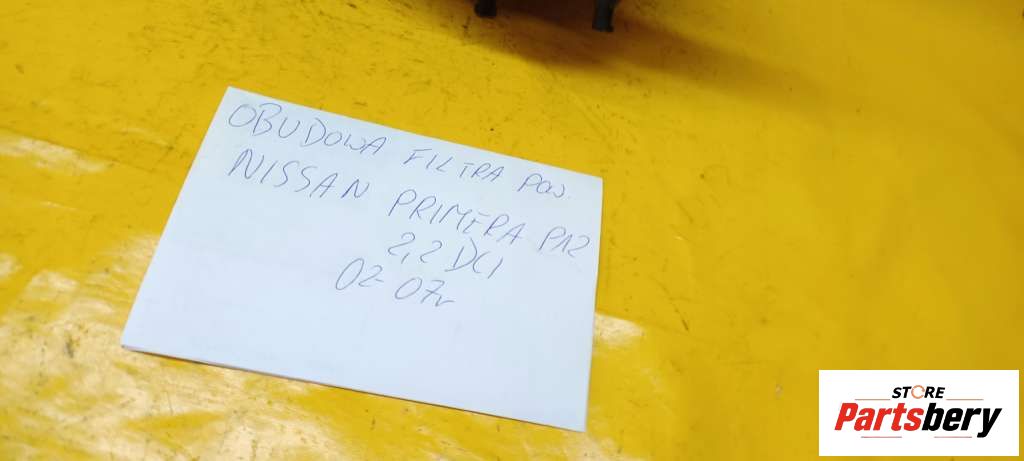 OBUDOWA FILTRA POW.
NISSAN PRIMERA P12
2,2 DCI
02-07r
STORE
Partsbery